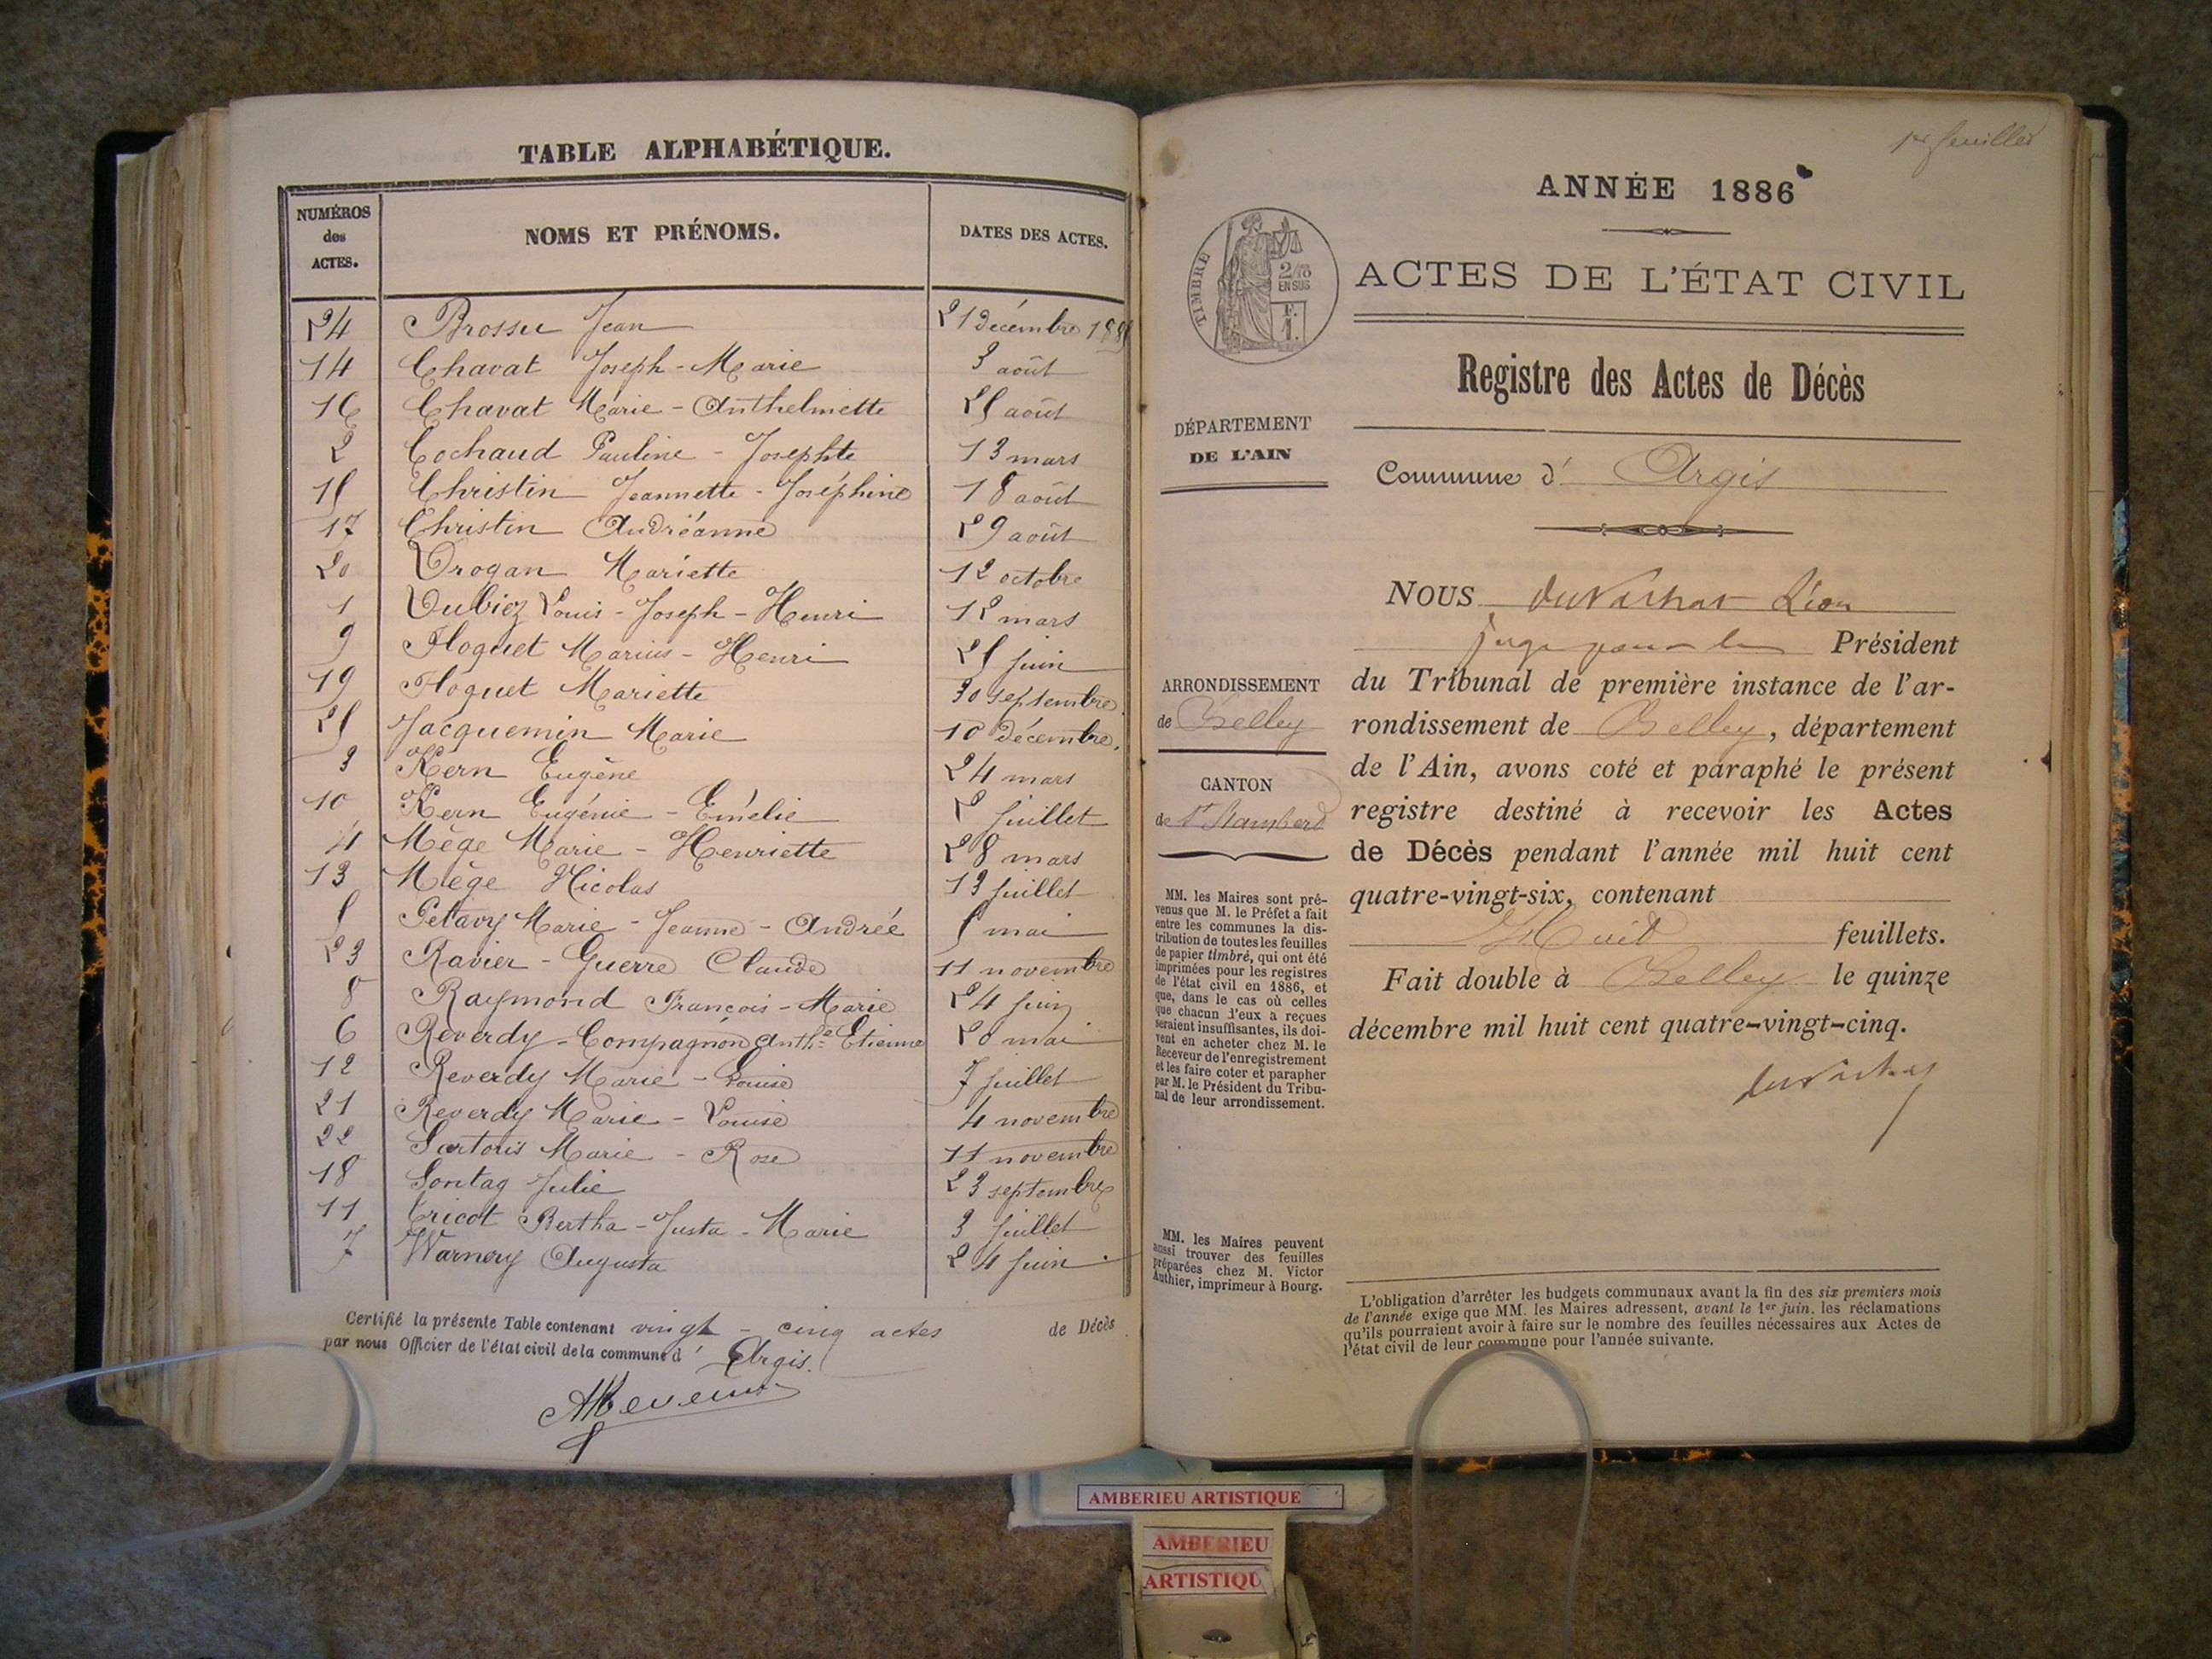 TABLE ALPHABÉTIQUE.
NUMÉROS des ACTES. NOMS ET PRÉNOMS. DATES DES ACTES.
24 Brosse Jean 21 Décembre 188
14 Chavat Joseph-Marie 3 août
16 Chavat Marie-Anthelmette 25 août
2 Cochaud Pauline-Josephte 13 mars
15 Christin Jeannette-Joséphine 18 août
17 Christin Andréanne 29 août
20 Drogan Mariette 12 octobre
1 Dubiez Louis-Joseph-Henri 12 mars
9 Floquet Marius-Henri 25 juin
19 Floquet Mariette 30 septembre.
25 Jacquemin Marie 10 décembre.
3 Kern Eugène 24 mars
10 Kern Eugénie-Emélie 2 juillet
4 Mège Marie-Henriette 28 mars
13 Mège Nicolas 13 juillet
5 Petavy Marie-Jeanne-Andréé 5 mai
23 Ravier-Guerre Claude 11 novembre
8 Raymond François-Marie 24 juin
6 Reverdy-Compagnon Anthe Etienne 20 mai
12 Reverdy Marie-Louise 7 juillet
21 Reverdy Marie-Louise 4 novembre
22 Sartoris Marie-Rose 11 novembre
18 Sontag Julie 23 septembre
11 Tricot Bertha-Justa-Marie 3 juillet
7 Warnery Augusta 24 juin
Certifié la présente Table contenant vingt-cinq actes de Décès
par nous Officier de l'état civil de la commune d' Argis.
1er feuillet
ANNÉE 1886
TIMBRE
2/10
EN SUS
F.
1.
ACTES DE L'ÉTAT CIVIL
Registre des Actes de Décès
DÉPARTEMENT
DE L'AIN
Commune d' Argis
NOUS Léon
juge pour le Président
ARRONDISSEMENT
de Belley
CANTON
de St Rambert
du Tribunal de première instance de l'ar-
rondissement de Belley, département
de l'Ain, avons coté et paraphé le présent
registre destiné à recevoir les Actes
de Décès pendant l'année mil huit cent
quatre-vingt-six, contenant
Huit feuillets.
Fait double à Belley le quinze
décembre mil huit cent quatre-vingt-cinq.
MM. les Maires sont pré-
venus que M. le Préfet a fait
entre les communes la dis-
tribution de toutes les feuilles
de papier timbré, qui ont été
imprimées pour les registres
de l'état civil en 1886, et
que, dans le cas où celles
que chacun d'eux a reçues
seraient insuffisantes, ils doi-
vent en acheter chez M. le
Receveur de l'enregistrement
et les faire coter et parapher
par M. le Président du Tribu-
nal de leur arrondissement.
MM. les Maires peuvent
aussi trouver des feuilles
préparées chez M. Victor
Authier, imprimeur à Bourg.
L'obligation d'arrêter les budgets communaux avant la fin des six premiers mois
de l'année exige que MM. les Maires adressent, avant le 1er juin, les réclamations
qu'ils pourraient avoir à faire sur le nombre des feuilles nécessaires aux Actes de
l'état civil de leur commune pour l'année suivante.
AMBERIEU ARTISTIQUE
AMBERIEU
ARTISTIQU